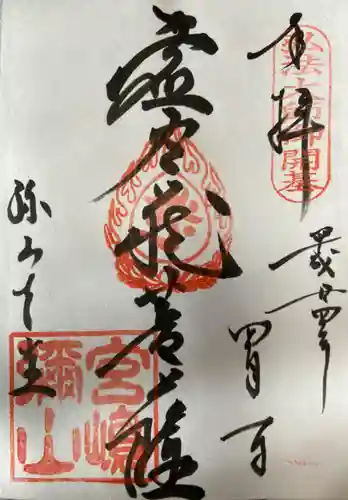 奉拝
弘法大師開基
廿四年
四月
虚空蔵菩薩
弥山本堂
宮嶋
彌山